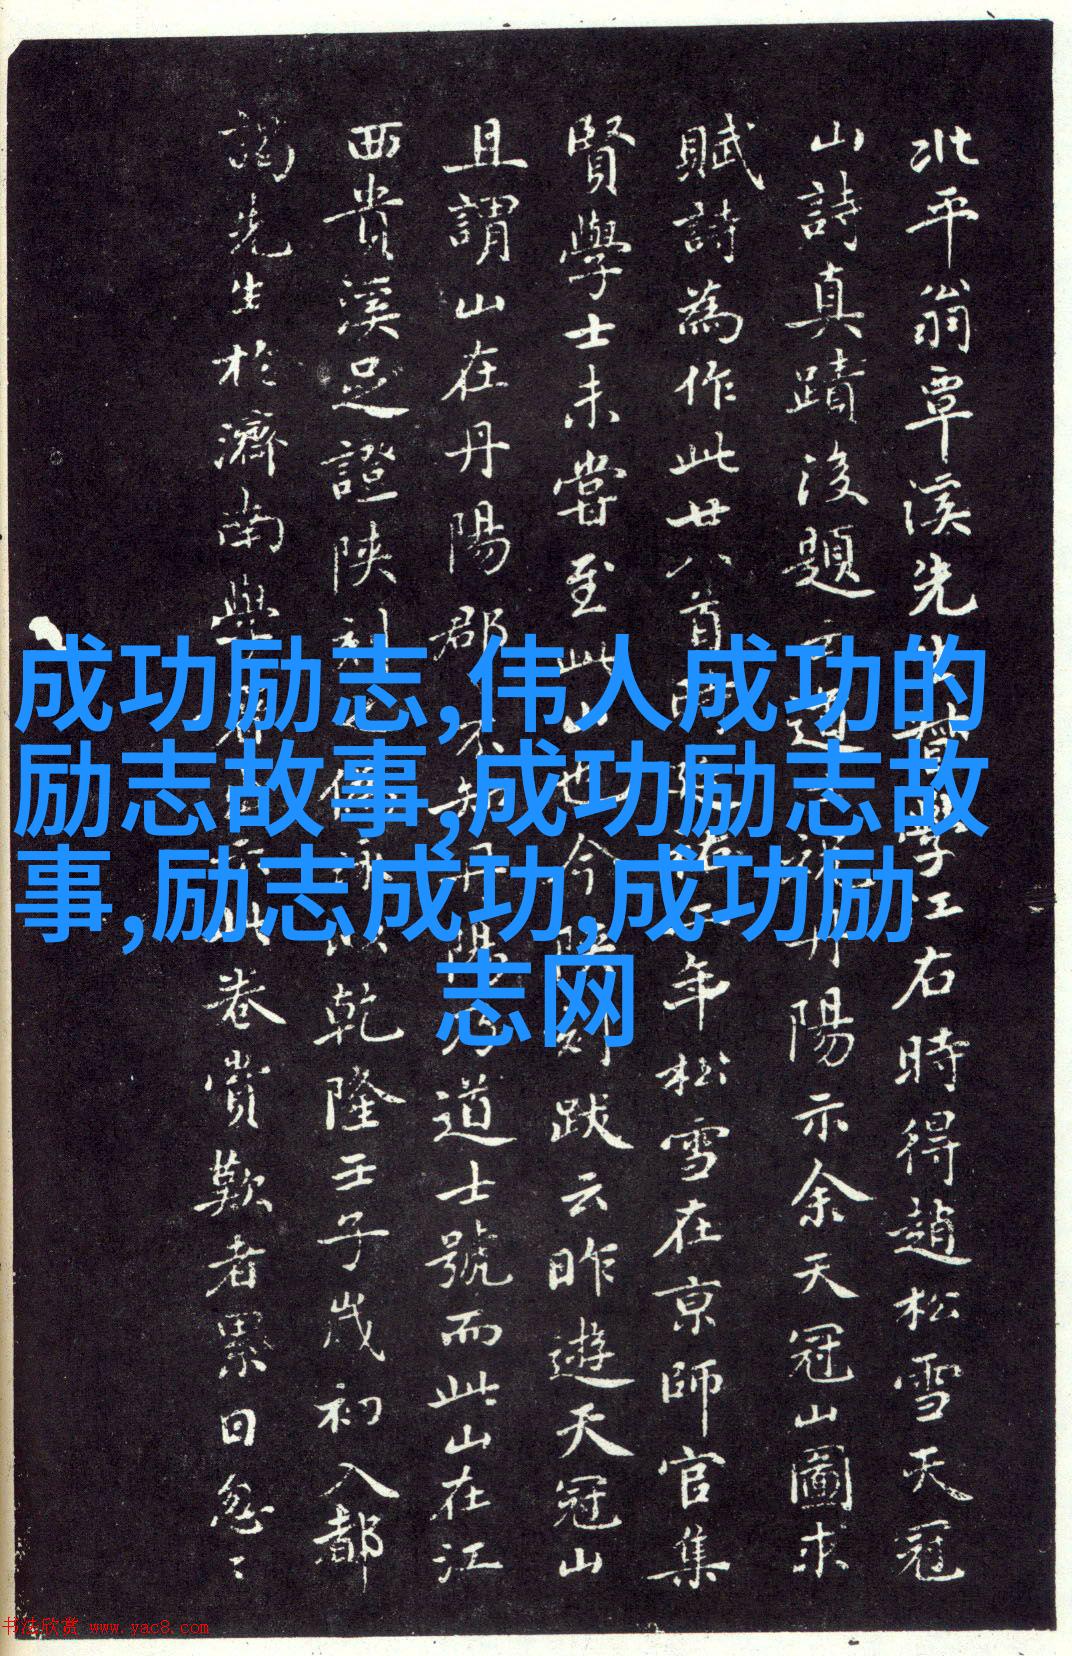 北平翁覃溪先生督學江右時得趙松雪天冠
山詩真蹟後題道丹陽示余天冠山圖求
賦詩為作此廿八首年松雪在京師官集
賢學士未嘗至此山也今陝刻跋云昨遊天冠山
且謂山在丹陽郡不知丹陽乃道士號而此山在江
西貴溪足證陝刻乾隆壬子歲初入都
謁先生於濟南學此卷賞歎者累日忽〻
成功励志,伟人成功的
励志故事,成功励志故
事,励志成功,成功励
志网
书法欣赏 www.yac8.com